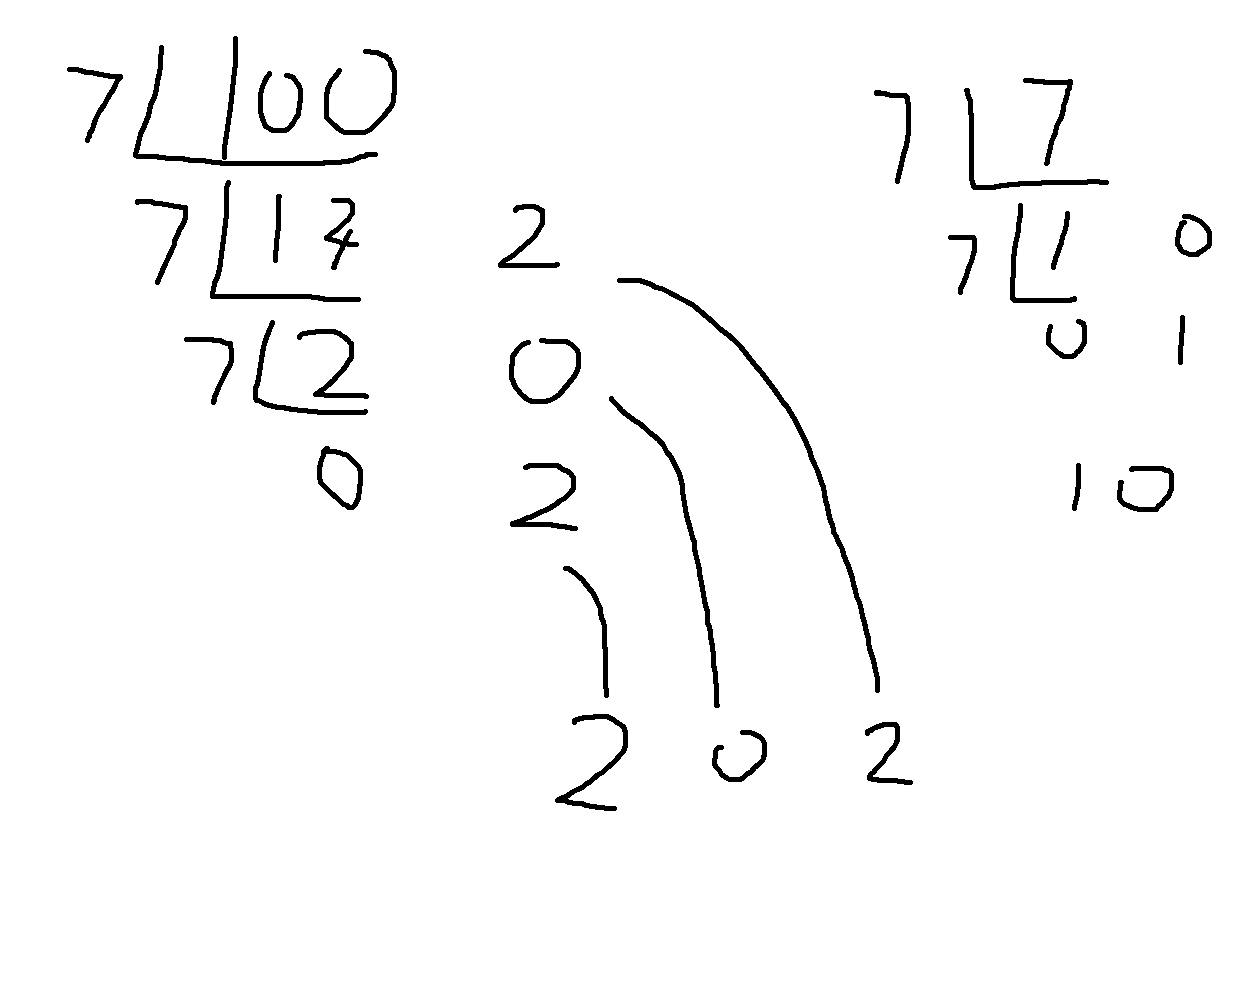 7 100
7 14 2
7 2 0
0 2
2 0 2
7 7
7 1 0
0 1
10